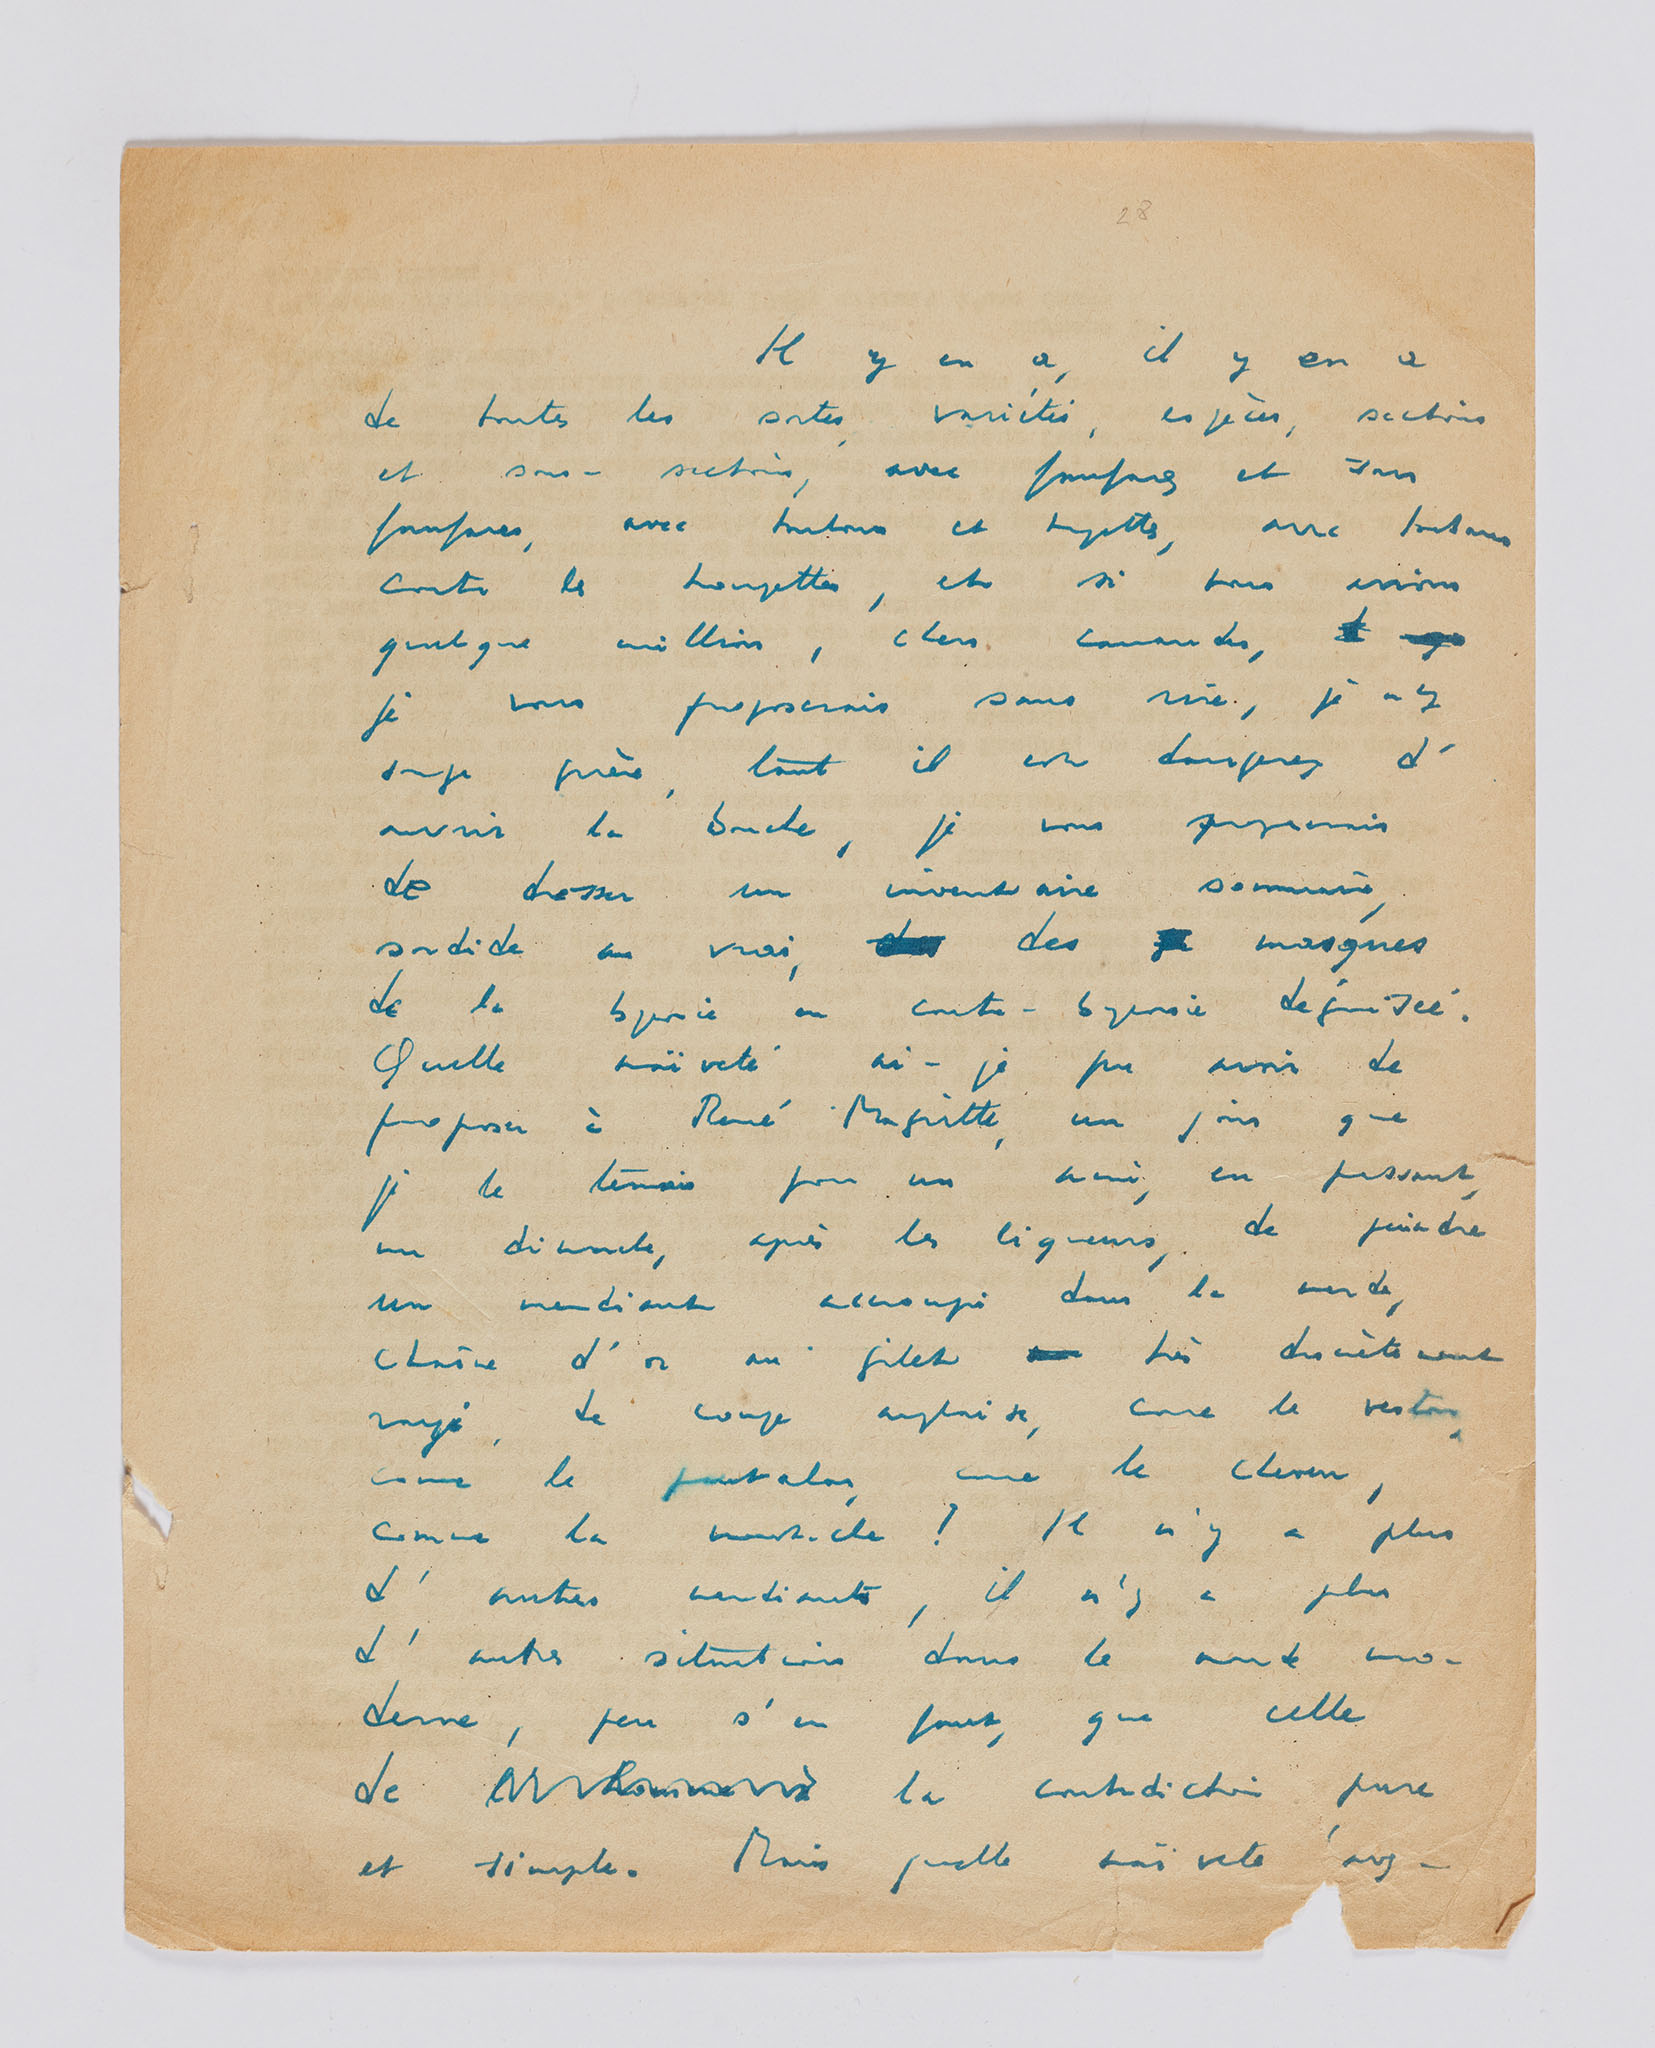 28
Il y en a, il y en a
de toutes les sortes, variétés, espèces, sections
et sous-sections, avec fanfares et sans
fanfares, avec et avec
contre les trompettes, et si nous avions
quelque million, chers camarades,
je vous proposerais sans rire, je n'y
songe guère, tant il est dangereux d'
ouvrir la bouche, je vous proposerais
de dresser un inventaire sommaire,
sordide au vrai, des masques
de la bgeoisie en contre-bgeoisie déguisée.
Quelle naïveté ai-je pu avoir de
proposer à René Magritte, un jour que
je le tenais pour un ami, en passant,
un dimanche, après les liqueurs, de peindre
un mendiant accroupi dans la merde,
chaîne d'or au gilet très discrètement
rayé, de coupe anglaise, comme le veston,
comme le pantalon, comme le cheveu,
comme la moustache ! Il n'y a plus
d'autres mendiants, il n'y a plus
d'autres situations dans le monde mo-
derne, peu s'en faut, que celle
de la contradiction pure
et simple. Mais quelle naïveté